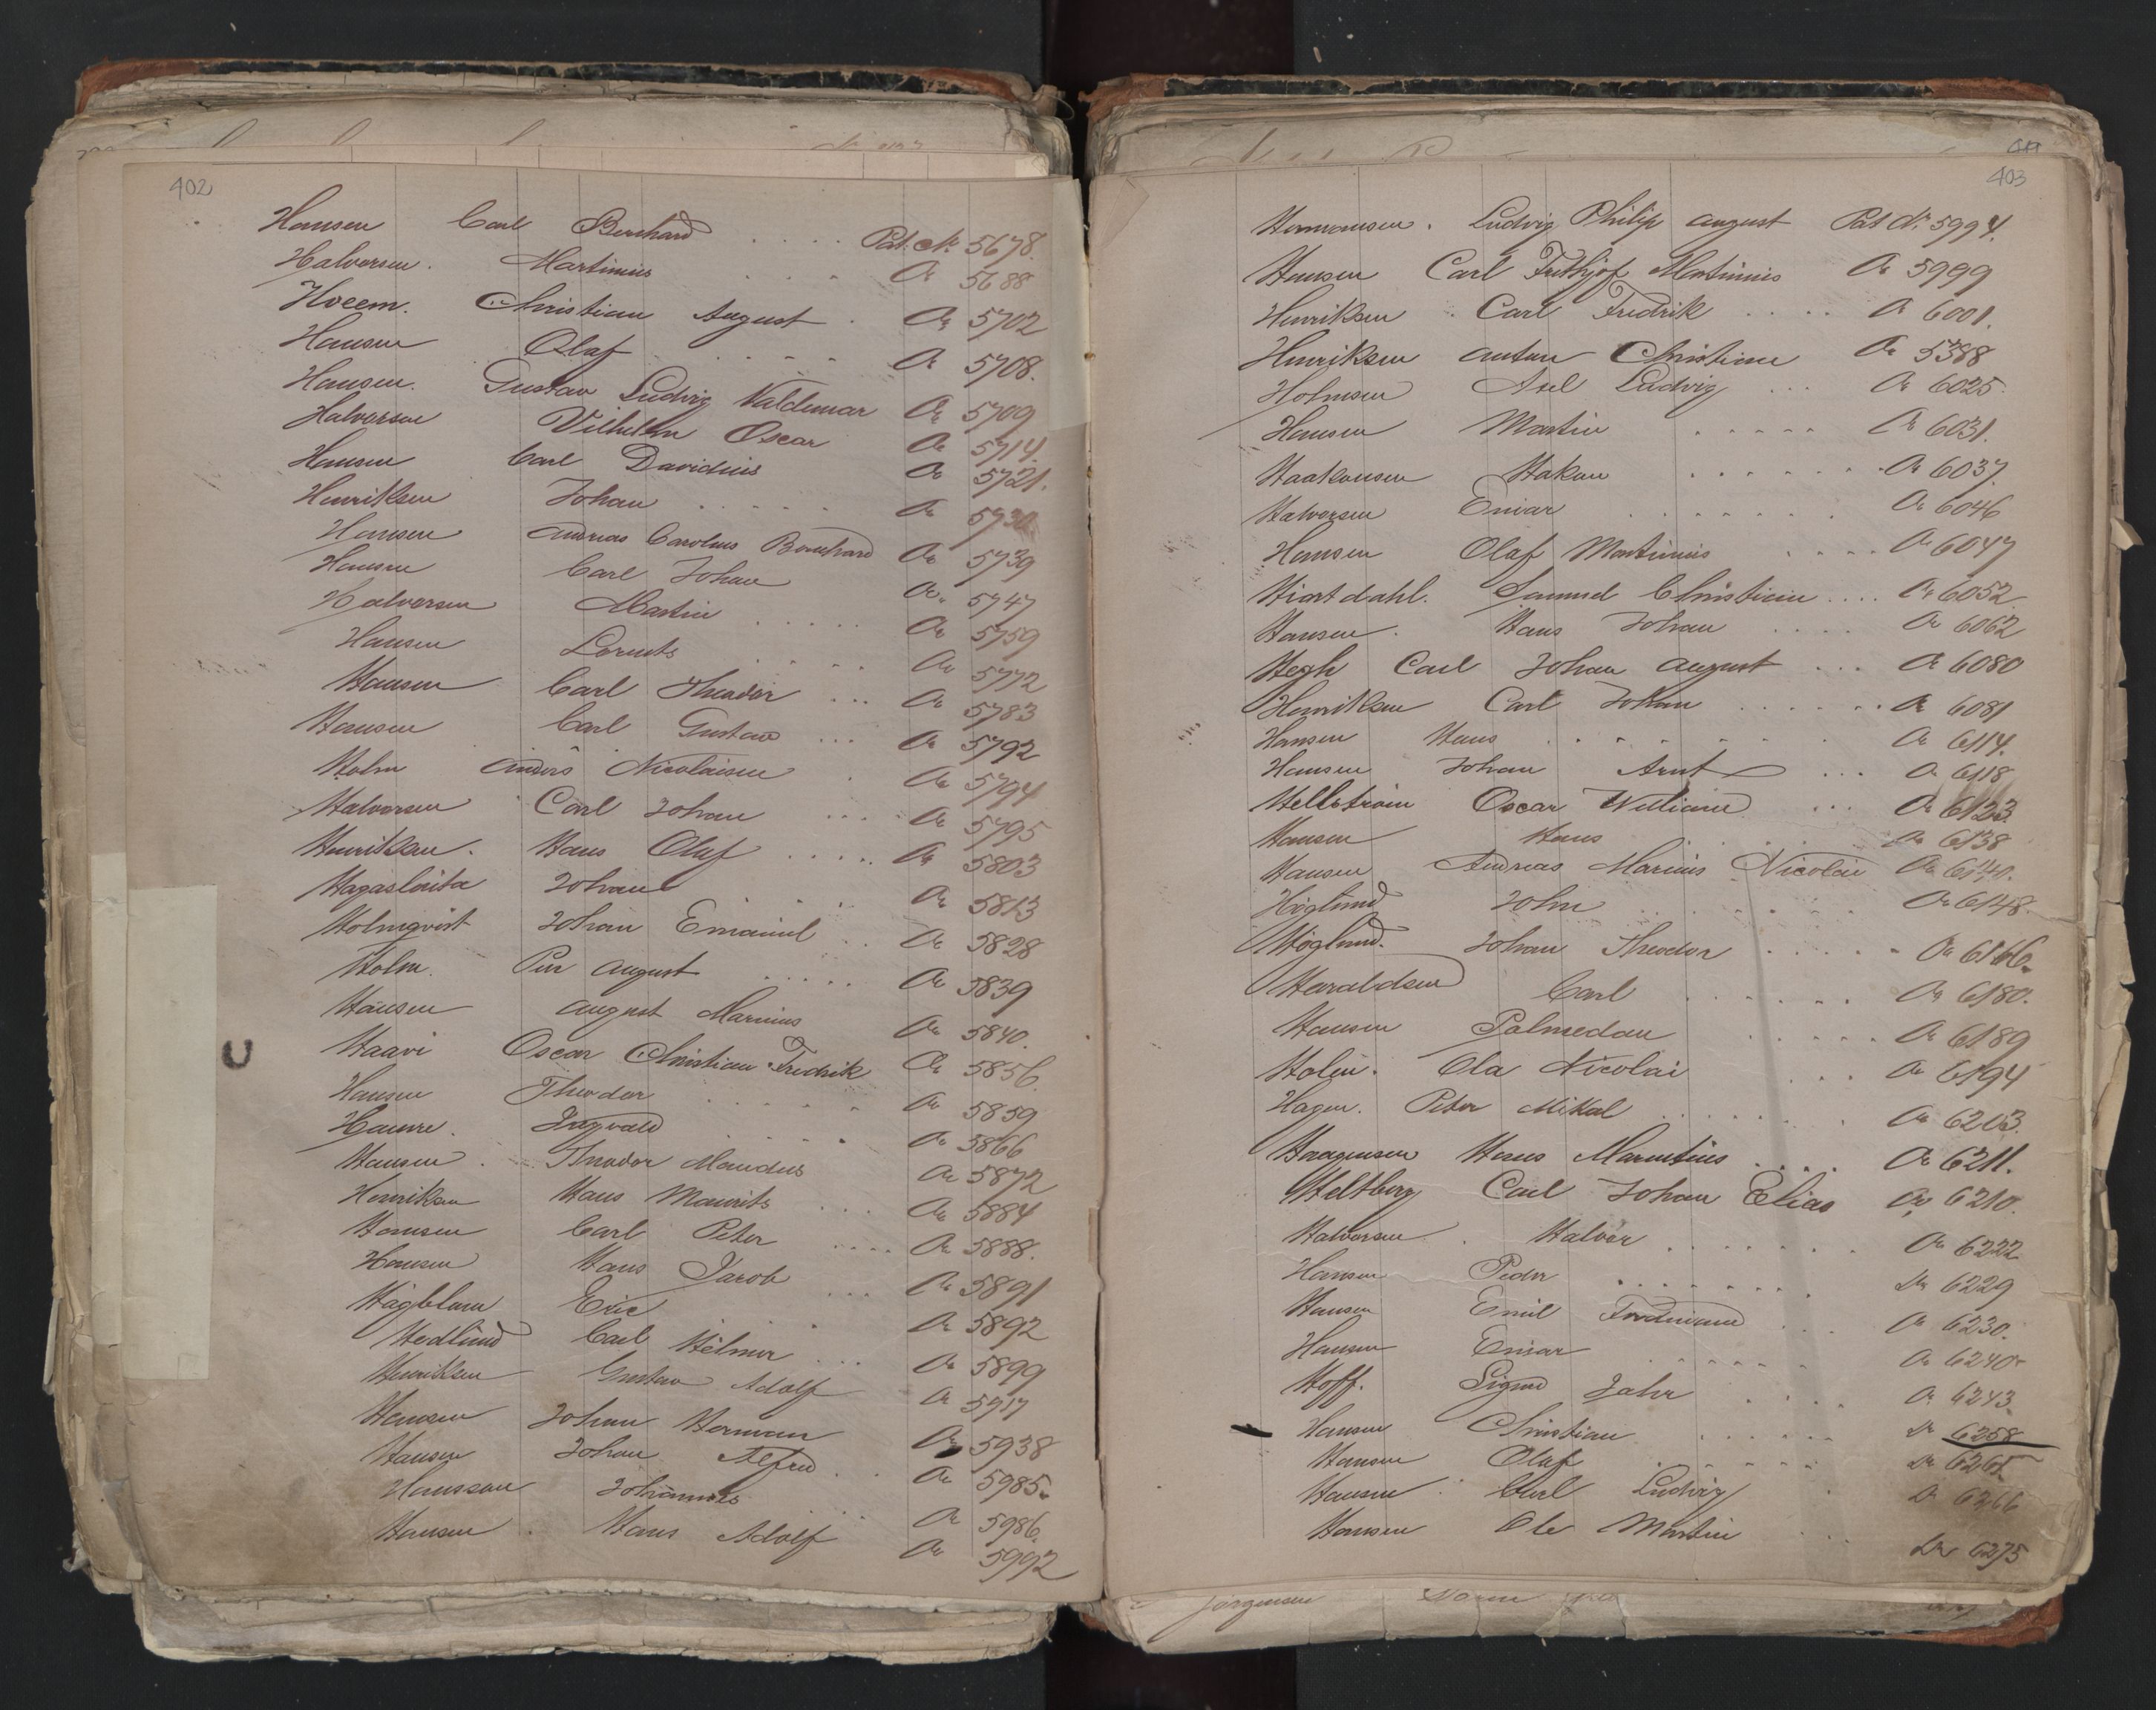 402
Hansen Carl Bernhard . . . . Pat. Nr. 5678.
Halvorsen. Martinius . . . . Do 5688
Hoeem. Christian August . Do 5702
Hansen Olaf . . . . Do 5708.
Hansen. Gustav Ludvig Valdemar Do 5709
Halvorsen Vilhelm Oscar Do 5714.
Hansen Carl Davidius Do 5721.
Henriksen Johan . . . . . Do 5730
Hansen Andreas Carolus Bernhard Do 5739
Hansen Carl Johan Do. 5747
Halvorsen Martin . . . . . Do 5759
Hansen Lorents . . . . . Do 5772
Hansen Carl Theodor . . . Do 5783
Hansen Carl Gustav . . . Do 5792
Holm Anders Nicolaisen . Do 5794
Halvorsen Carl Johan . . . . Do 5795
Henriksen. Hans Olaf . . . . . Do 5803
Johan . . . Do 5813
Holmqvist Johan Emanuel . . Do 5828
Holm. Per August . . . . . Do 5839
Hansen August Marinius Do 5840.
Haavi Oscar Christian Fredrik Do 5856.
Hansen Theodor . . . . . Do 5859
Do 5866
Hansen . Theodor Mandus Do 5872
Henriksen Hans Mauritz . . . Do 5884
Hansen Carl Peter . . . . Do 5888.
Hansen Hans Jacob . . . Do 5891
Hägblom Eric . . . Do 5892
Hedlund Carl Hilmer . . . Do 5899
Henriksen Gustav Adolf Do 5917
Hansen Johan Herman Do 5938
Hansen Johan Alfred . . Do 5985.
Hansson Johannes . . . Do 5986.
Hansen . Hans Adolf Do 5992
403
Hermansen . Ludvig Philip August Pat Nr. 5994.
Hansen Carl Frithjof Martinius Do 5999
Henriksen . Carl Fredrik . . . . . Do 6001.
Henriksen Anton Christian Do 5388
Holmsen Axel Ludvig . . . Do 6025.
Hansen Martin . . . . . Do 6031.
Haakonsen Hakon . . . . . . . Do 6037.
Halvorsen Einar . . . . . . . Do 6046
Hansen Olaf Martinius . . . . Do 6047
Hiortdahl. Samuel Christian . . . . Do 6052
Hansen. Hans Johan . . . . Do 6062
Hegh Carl Johan August . . . Do 6080
Henriksen Carl Johan . . . . . . Do 6081
Hansen Hans . . . . . . . Do 6114.
Hansen Johan Arnt . . . Do 6118
Hellström Oscar William . . . Do 6123.
Hansen Hans . . . . Do 6138
Hansen Andreas Marius Nicolai Do 6140.
Höglund John . . . . . . . Do 6148.
Höglund. Johan Theodor . . . . . Do 6166.
Haraldsen Carl . . . . . . Do 6180.
Hansen Palmedan . . . . . Do 6189
Holm. Ola Nicolai . . . Do 6194
Hagen. Peter Mikal . . . . . . Do 6203.
Haagensen Hans Marentius . . . . Do 6211.
Heltberg Carl Johan Elias Do 6210.
Halvorsen . Halvor . . . . . . . Do 6222
Hansen Peder . . . . . . . Do 6229
Hansen Emil Ferdinand . . . Do 6230.
Hansen Einar . . . . . Do 6240
Hoff. Sigurd Jahr . . . . Do 6243.
Hansen Christian . . . . . . Do 6258
Hansen Olaf . . . . . Do 6265
Hansen . Carl Ludvig . Do 6266
Hansen Ole Martin . . Do 6275
Jörgensen